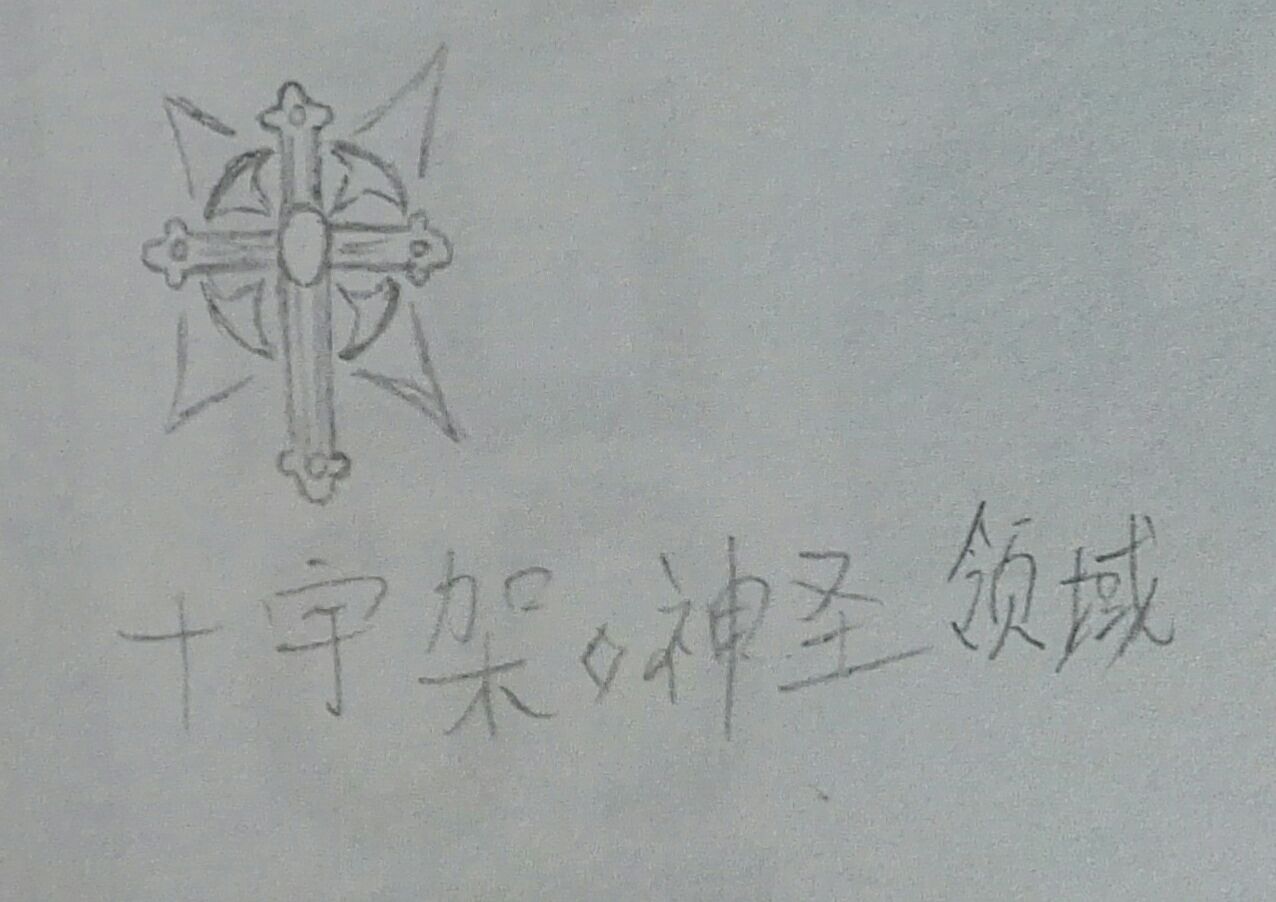 十字架。神圣领域